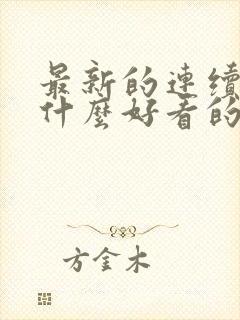 最新的連續
什麼好看的
方金木